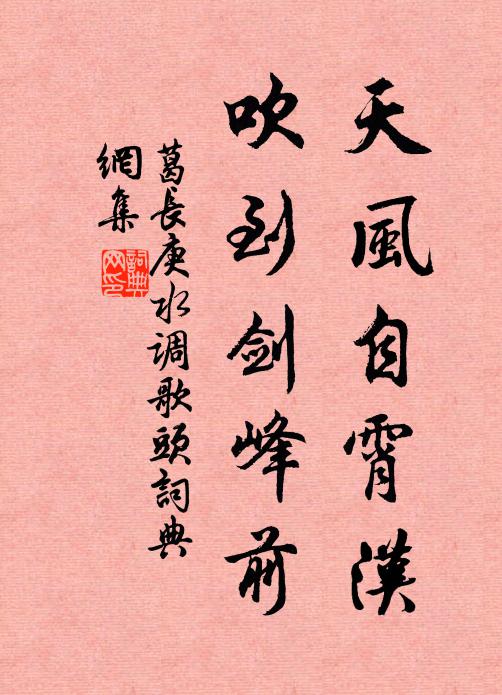 天風自霄漢
吹到劍峰前
葛長庚水调歌頭詞典
網集
詞典
网印